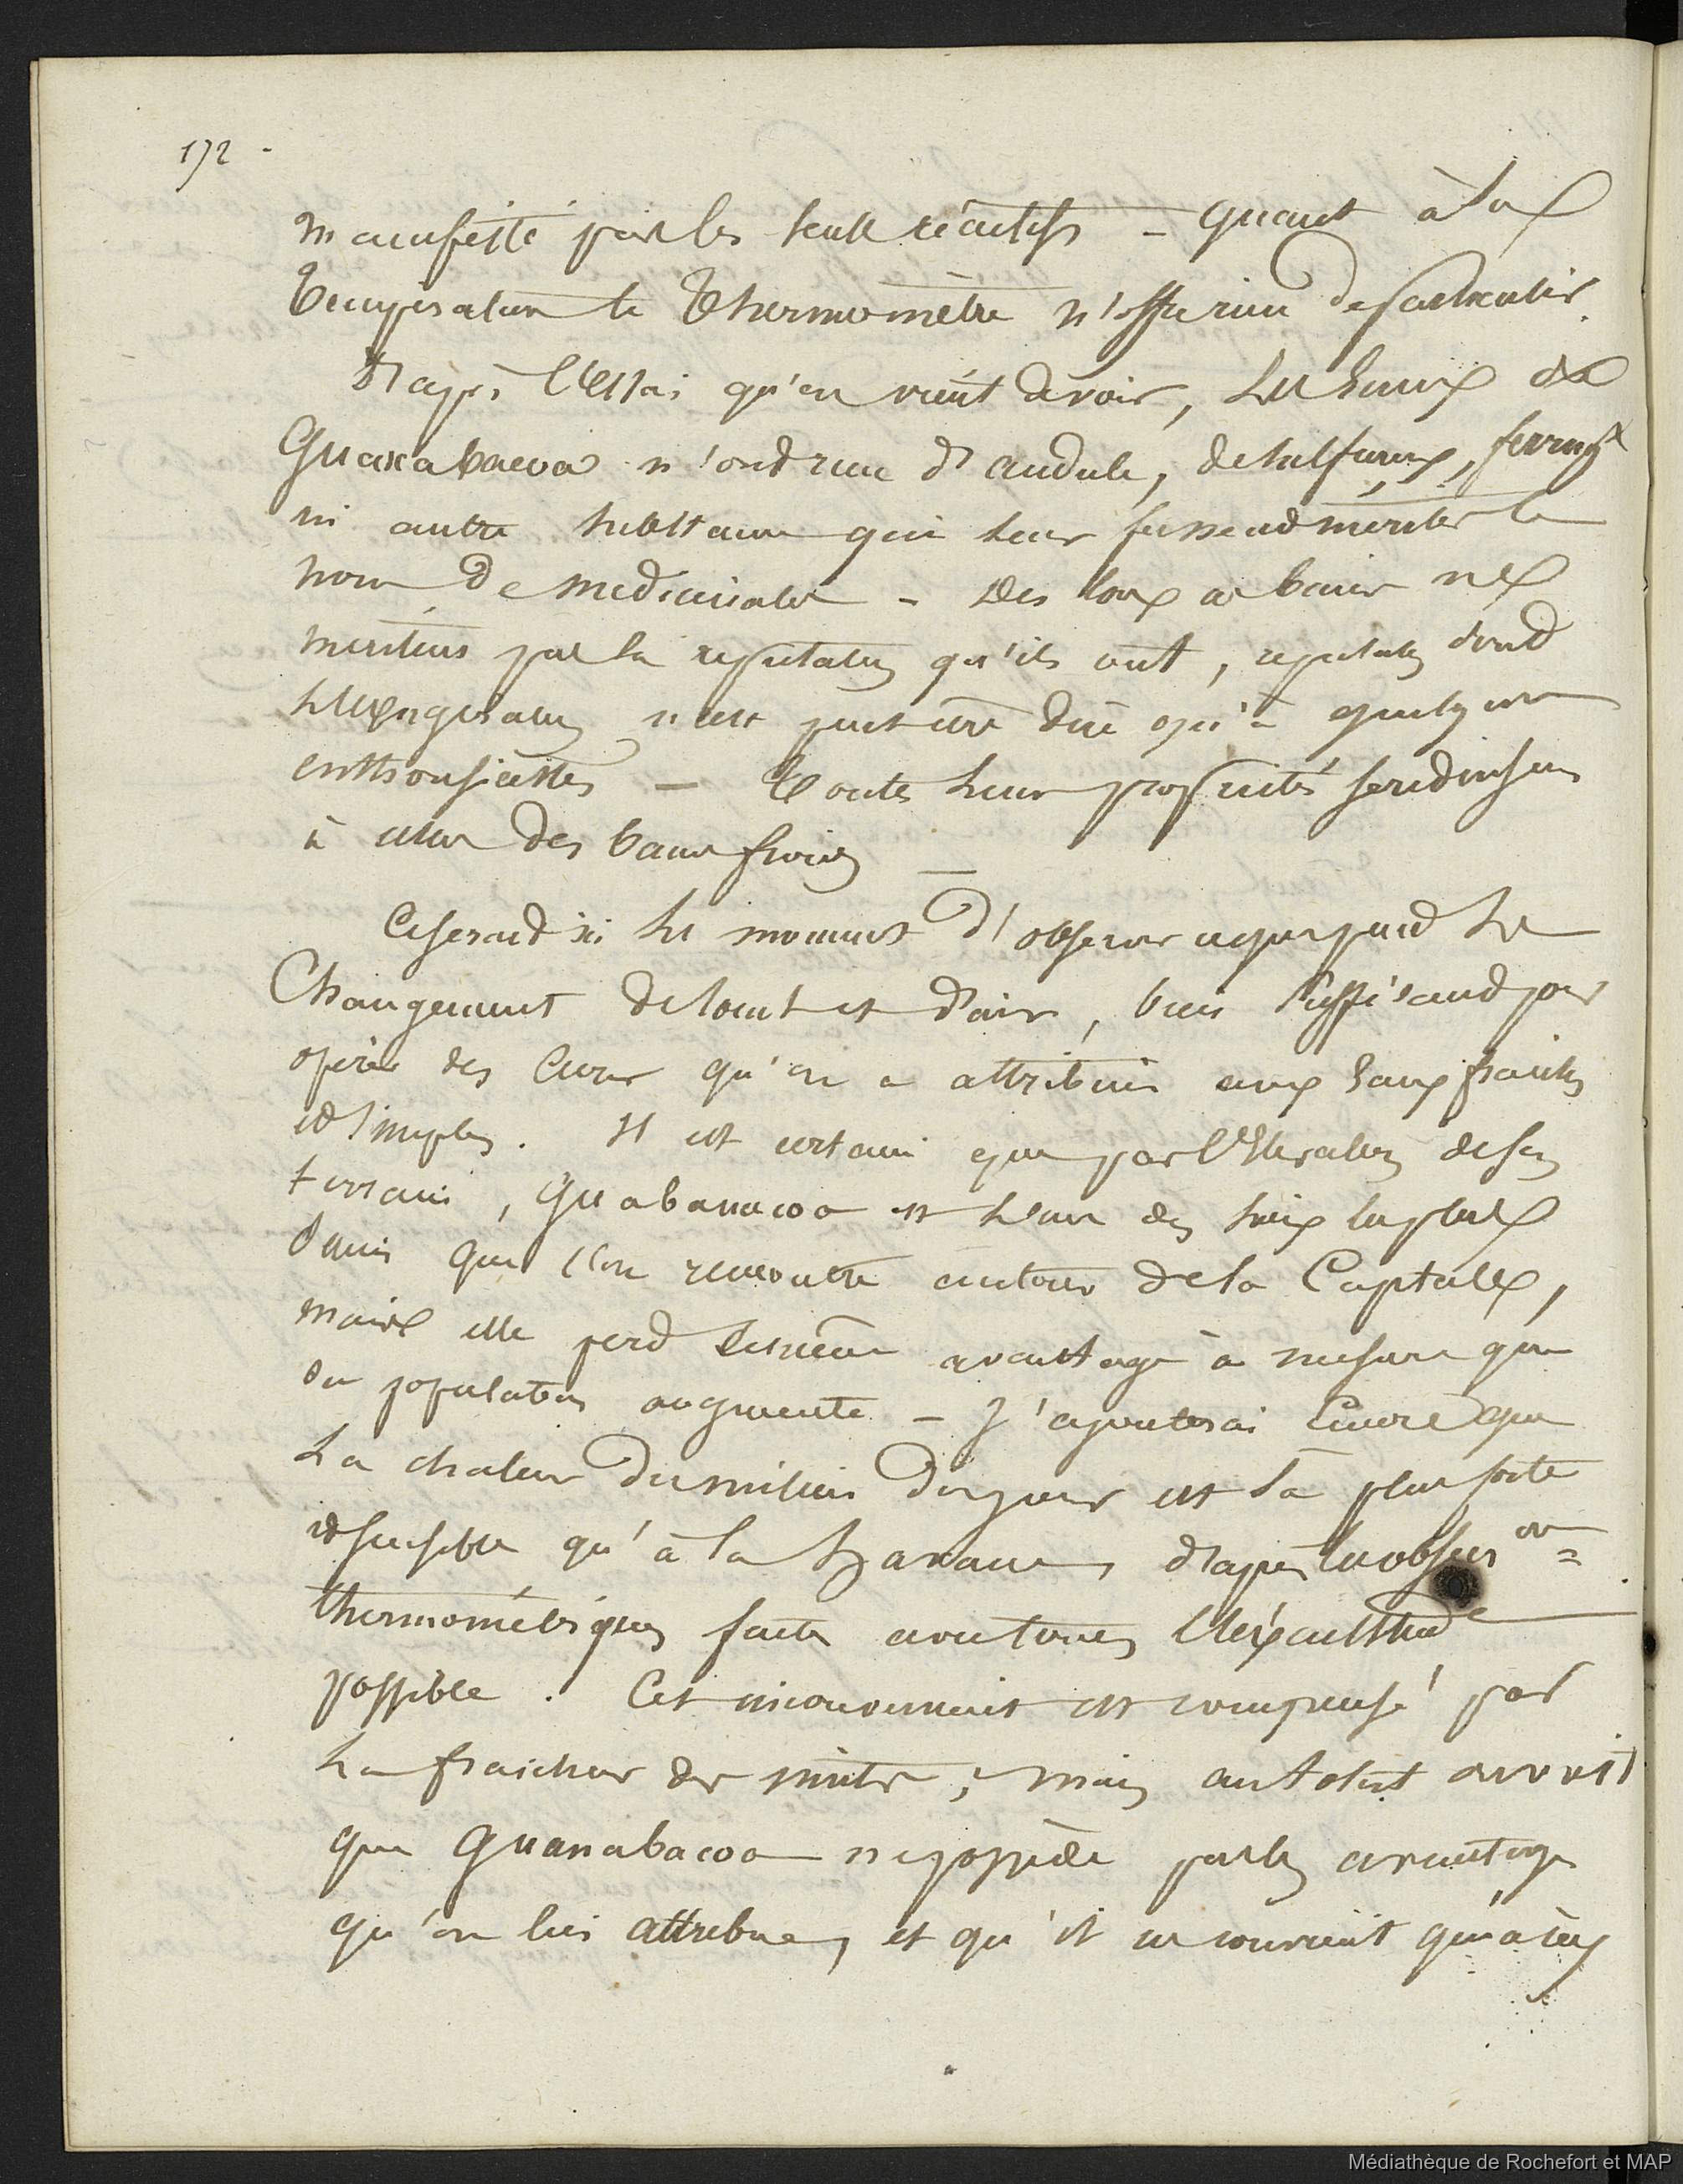 172 -
manifesté par les seuls réactifs - Quant à la
température le Thermomètre n'offre rien de particulier.
D'après l'Essai qu'on vient de voir, les Eaux de
Guanabacoa n'ont rien d'acidule, de sulfureux, ferrugx
ni autre substance qui leur fassent mériter le
nom de médicinales - Des lors ces bains ne
méritent pas la réputation qu'ils ont, réputation dont
l'exagération n'est peut être due qu'à quelques
enthousiastes - Toutes leurs propriétés se réduisent
à celles des bains froids
Ce serait ici le moment d'observer ce que peut le
Changement de local et d'air, bien suffisant pour
opérer des Cures qu'on a attribuées aux Eaux fraiches
et simples. Il est certain que par l'Elévation de son
terrain, Guabanacoa est l'un des lieux les plus
sains que l'on rencontre autour de la Capitale,
mais elle perd cet avantage à mesure que
sa population augmente - J'ajouterai Encore que
la chaleur du milieu du jour est là plus forte
et sensible qu'à la havane, d'après les observons =
thermométriques faites avec toute l'Exactitude
possible. Cet inconvénient est compensé par
la fraicheur des nuits; mais on voit
que Guanabacoa ne possède pas les avantages
qu'on lui attribue, et qu'il ne convient qu'à ceux
Médiathèque de Rochefort et MAP